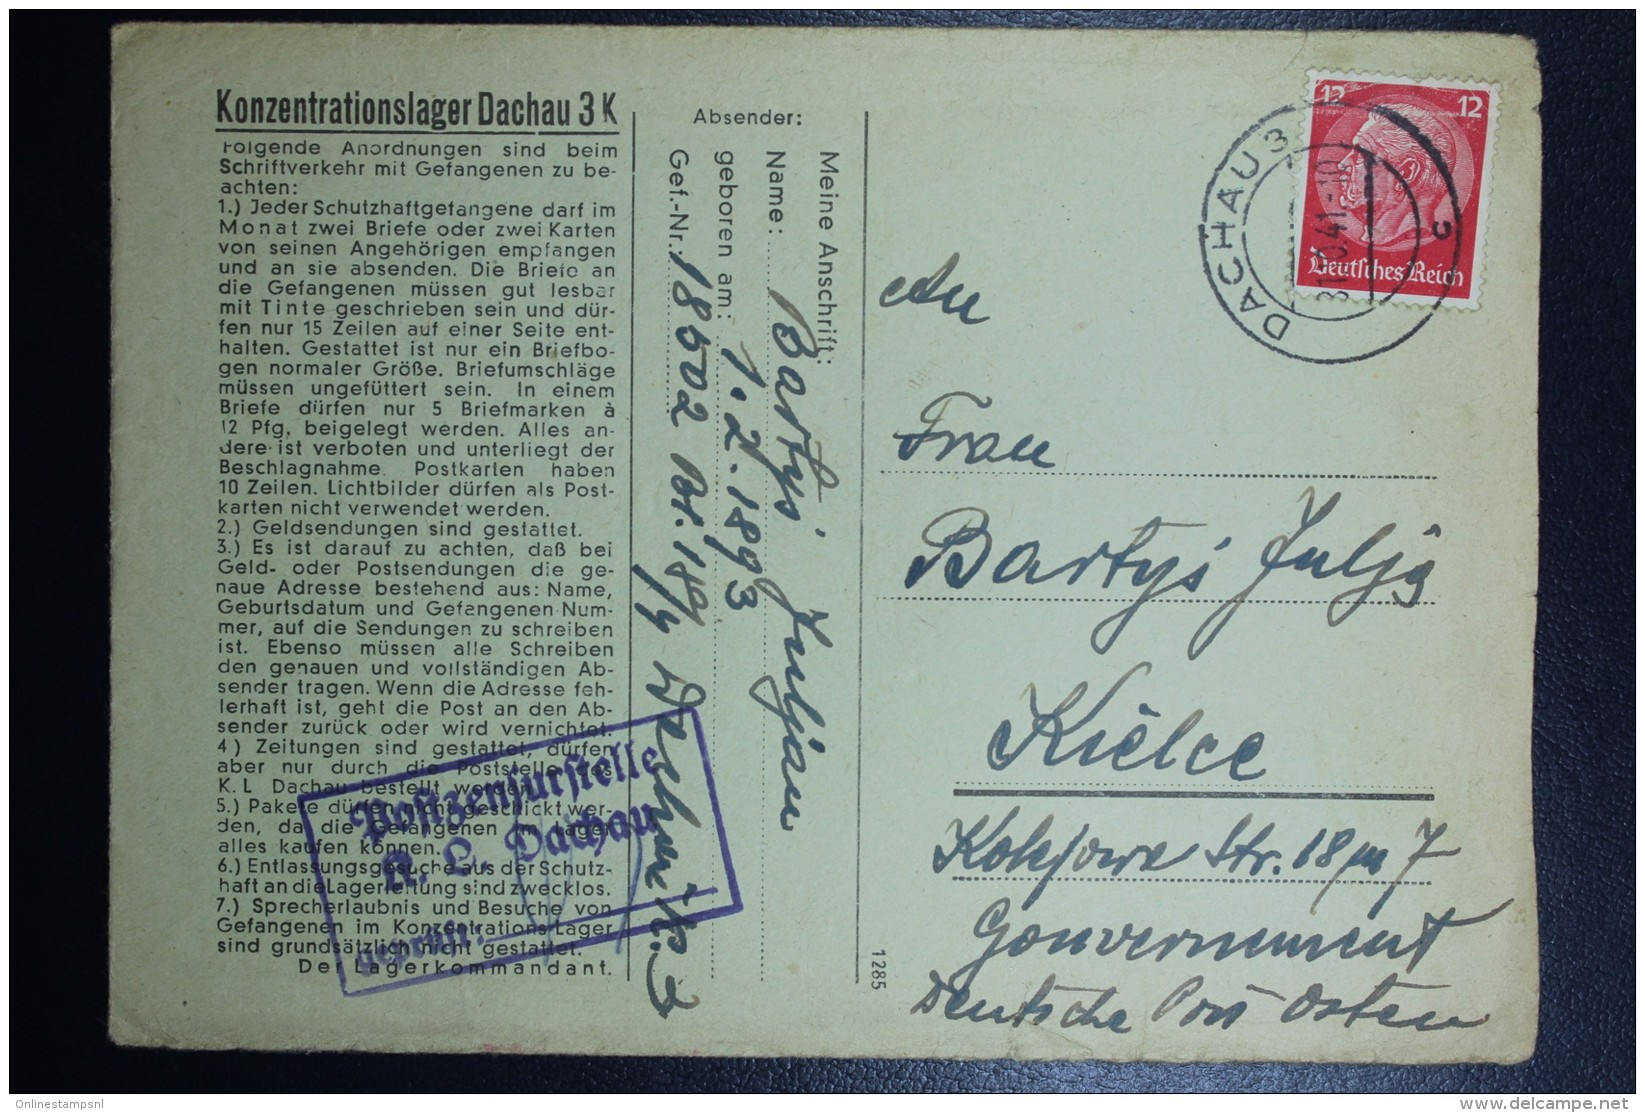 Konzentrationslager Dachau 3 K
Folgende Anordnungen sind beim
Schriftverkehr mit Gefangenen zu be-
achten:
1.) Jeder Schutzhaftgefangene darf im
Monat zwei Briefe oder zwei Karten
von seinen Angehörigen empfangen
und an sie absenden. Die Briefe an
die Gefangenen müssen gut lesbar
mit Tinte geschrieben sein und dür-
fen nur 15 Zeilen auf einer Seite ent-
halten. Gestattet ist nur ein Briefbo-
gen normaler Größe. Briefumschläge
müssen ungefüttert sein. In einem
Briefe dürfen nur 5 Briefmarken à
12 Pfg. beigelegt werden. Alles an-
dere ist verboten und unterliegt der
Beschlagnahme. Postkarten haben
10 Zeilen. Lichtbilder dürfen als Post-
karten nicht verwendet werden.
2.) Geldsendungen sind gestattet.
3.) Es ist darauf zu achten, daß bei
Geld- oder Postsendungen die ge-
naue Adresse bestehend aus: Name,
Geburtsdatum und Gefangenen-Num-
mer, auf die Sendungen zu schreiben
ist. Ebenso müssen alle Schreiben
den genauen und vollständigen Ab-
sender tragen. Wenn die Adresse feh-
lerhaft ist, geht die Post an den Ab-
sender zurück oder wird vernichtet.
4) Zeitungen sind gestattet, dürfen
aber nur durch die Poststelle des
K. L Dachau bestellt werden.
5.) Pakete dürfen nicht geschickt wer-
den, da die Gefangenen im Lager
alles kaufen können.
6.) Entlassungsgesuche aus der Schutz-
haft an die Lagerleitung sind zwecklos.
7.) Sprecherlaubnis und Besuche von
Gefangenen im Konzentrations-Lager
sind grundsätzlich nicht gestattet.
Der Lagerkommandant.
Postzensurstelle
K. L. Dachau
geprüft:
Absender:
Meine Anschrift:
Name: Bartyś Juljan
geboren am: 1.2.1893
Gef.-Nr. 18502 Bl. 18/4 Dachau K. 3
1285
12 12
Deutsches Reich
DACHAU 3
31.10.41-10
c
An
Frau
Bartyś Julja
Kielce
Str. 18 m 7
Gouvernement
Deutsche Post Osten
Onlinestampsnl
© delcampe.net